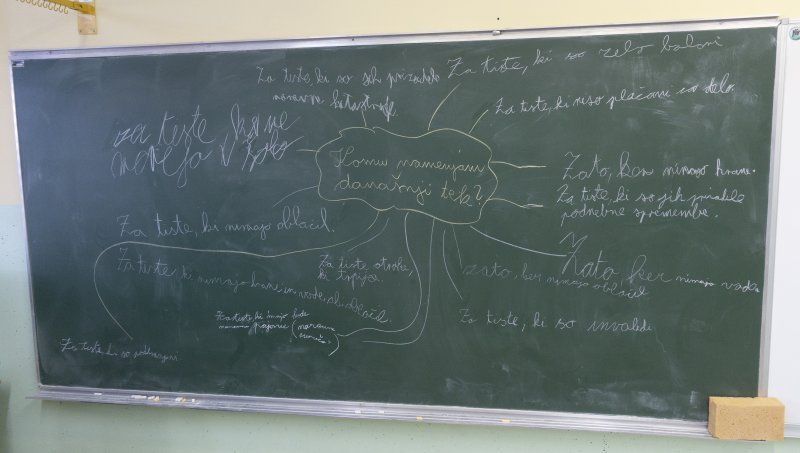 Za tiste, ki so zelo bolani
Za tiste, ki so jih prizadele
naravne katastrofe.
Za tiste, ki niso plačani za delo.
za tiste, ki ne
morejo v šolo
Komu namenjam
današnji tek?
Zato, ker nimajo hrane.
Za tiste, ki so jih prizadele
podnebne spremembe.
Za tiste, ki nimajo oblačil.
Zato, ker nimajo vode
Za tiste, ki nimajo hrane in vode, ali oblačil.
Za tiste otroke,
ki trpijo.
zato, ker nimajo oblačil
Za tiste, ki imajo
Za tiste, ki so invalidi
Za tiste ki so